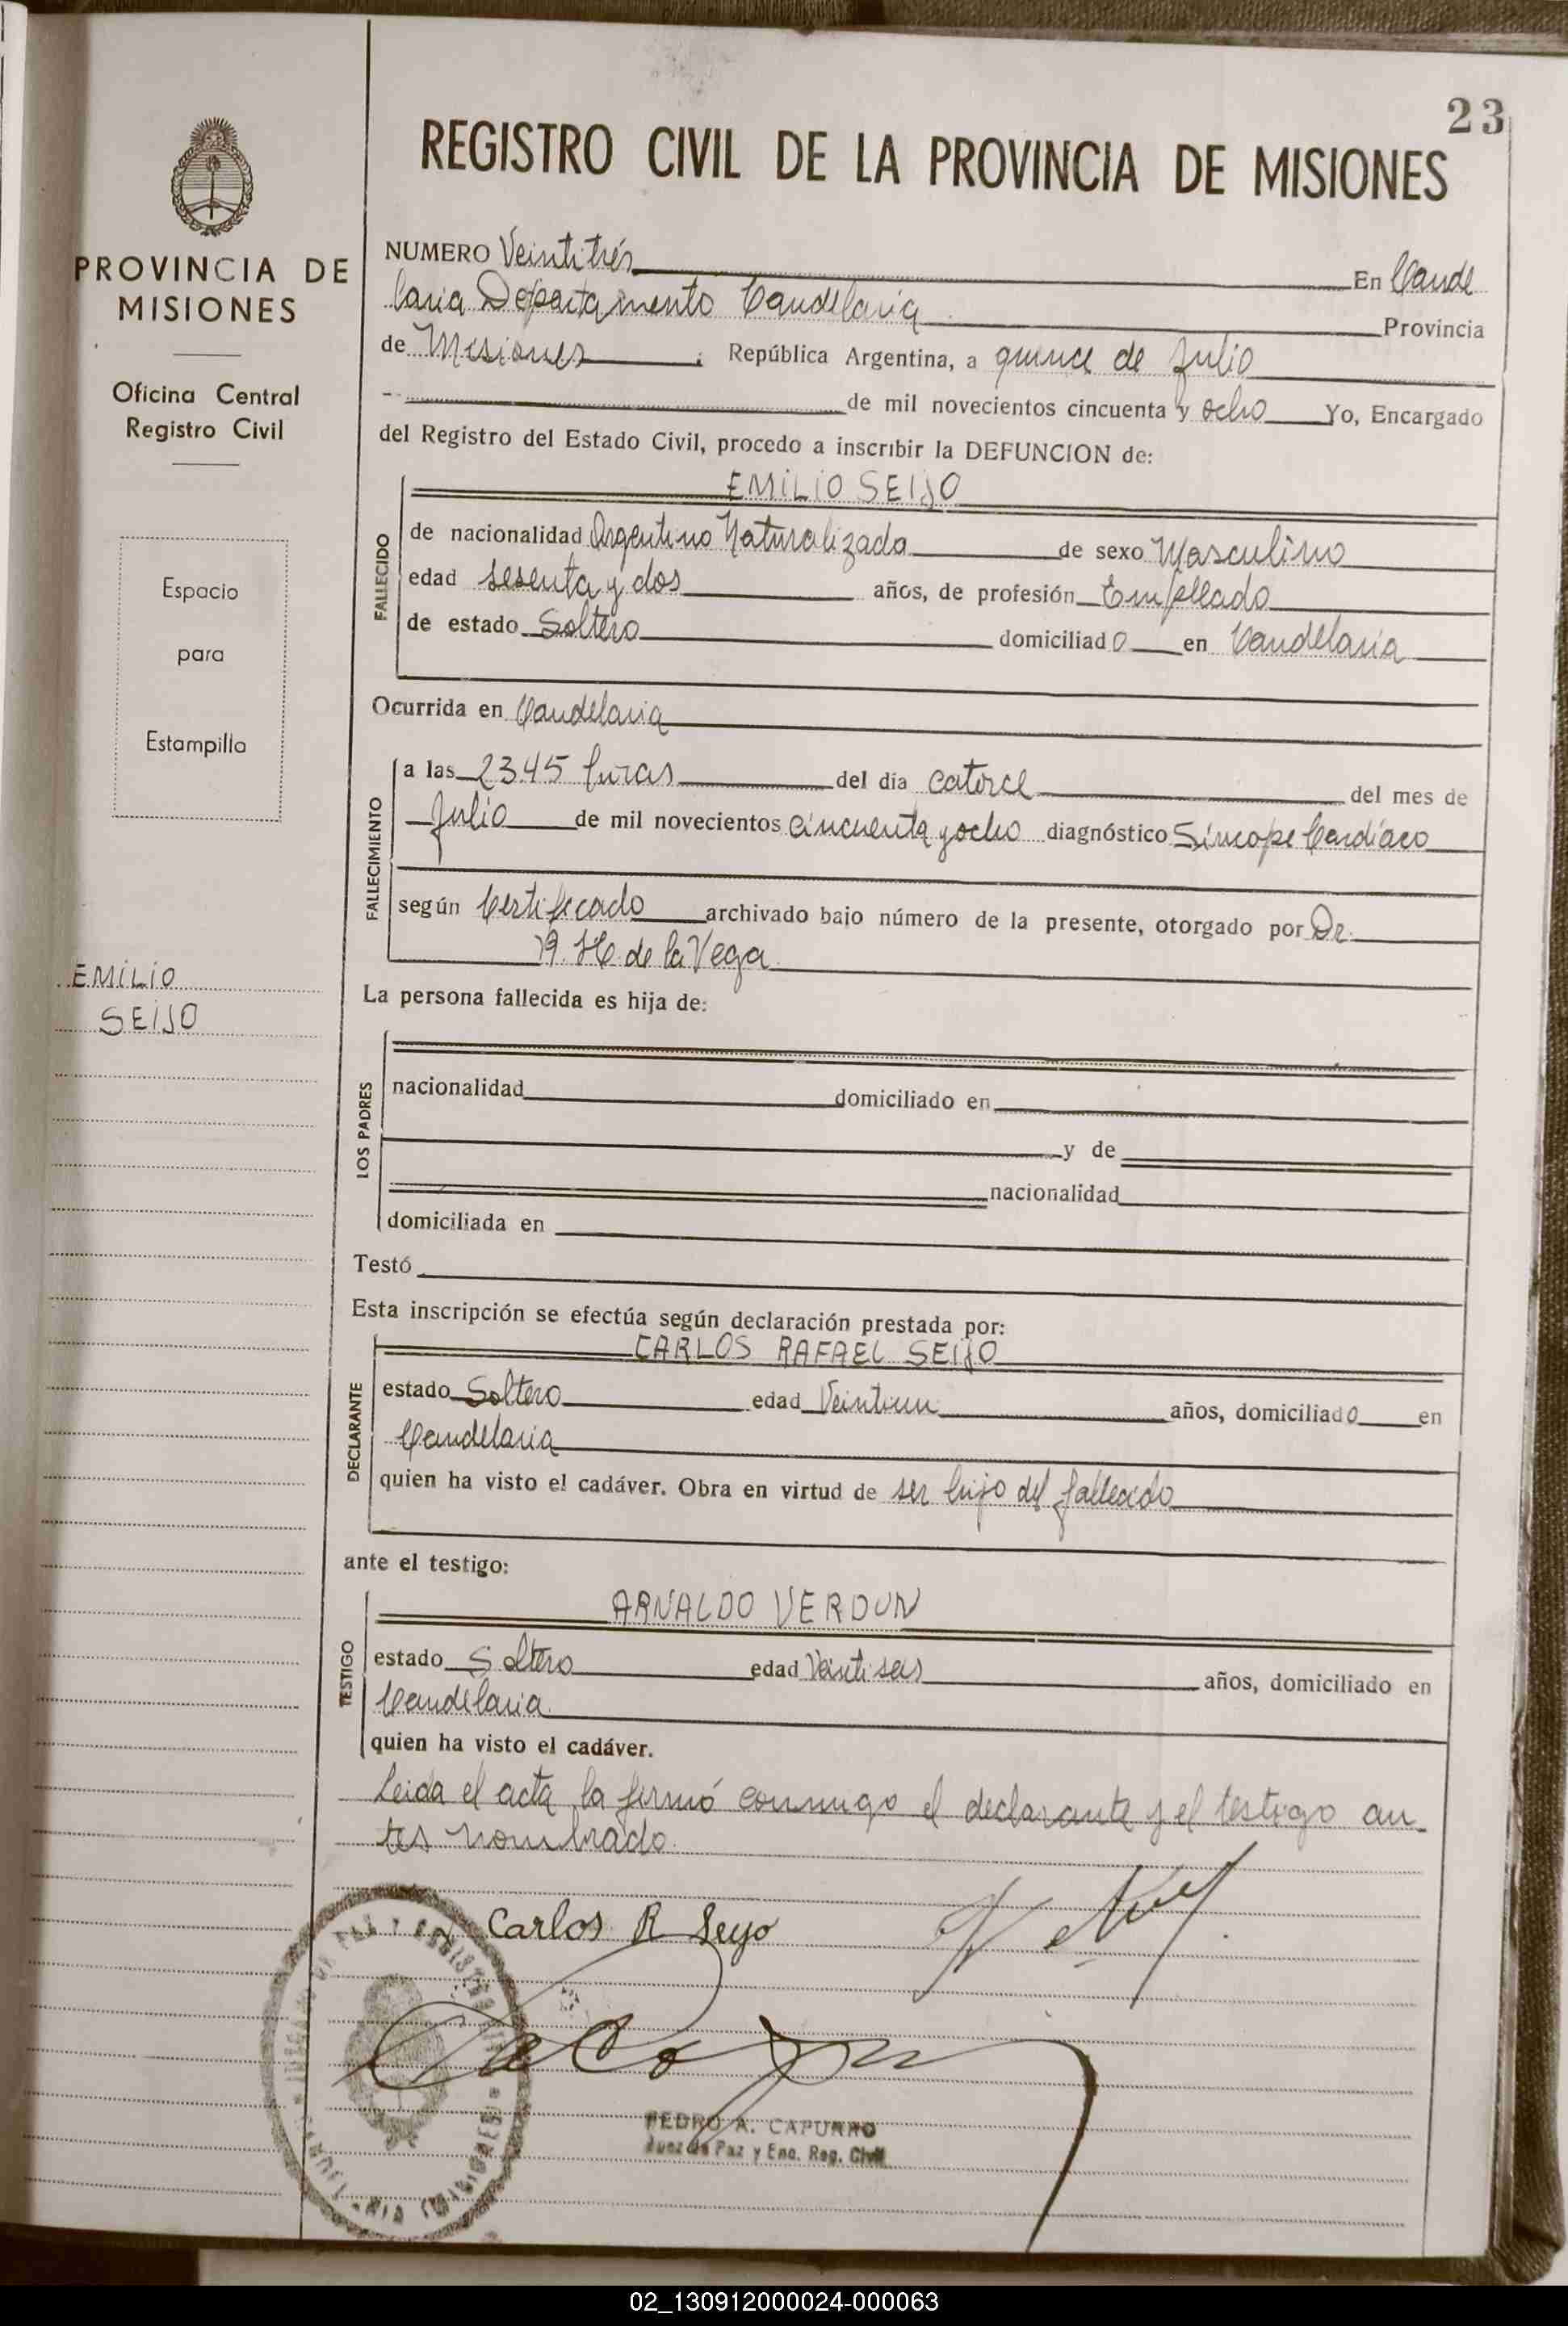 23
REGISTRO CIVIL DE LA PROVINCIA DE MISIONES
PROVINCIA DE
MISIONES
Oficina Central
Registro Civil
Espacio
para
Estampilla
EMILIO
SEIJO
NUMERO Veintitrés En Cande
laria Departamento Candelaria Provincia
de Misiones ; República Argentina, a quince de Julio
de mil novecientos cincuenta y ocho Yo, Encargado
del Registro del Estado Civil, procedo a inscribir la DEFUNCION de:
EMILIO SEIJO
FALLECIDO
de nacionalidad Argentino Naturalizado de sexo Masculino
edad sesenta y dos años, de profesión Empleado
de estado Soltero domiciliado en Candelaria
Ocurrida en Candelaria
FALLECIMIENTO
a las 23.45 horas del día catorce del mes de
Julio de mil novecientos cincuenta y ocho diagnóstico Síncope Cardíaco
según Certificado archivado bajo número de la presente, otorgado por Dr.
de la Vega
La persona fallecida es hija de:
LOS PADRES
nacionalidad domiciliado en
y de
nacionalidad
domiciliada en
Testó
Esta inscripción se efectúa según declaración prestada por:
CARLOS RAFAEL SEIJO
DECLARANTE
estado Soltero edad Veintiun años, domiciliado en
Candelaria
quien ha visto el cadáver. Obra en virtud de ser hijo del fallecido
ante el testigo:
ARNALDO VERDUN
TESTIGO
estado Soltero edad Veintiseis años, domiciliado en
Candelaria
quien ha visto el cadáver.
Leida el acta la firmó conmigo el declarante y el testigo an
tes nombrado.
Carlos R Seijo
PEDRO A. CAPURRO
Juez de Paz y Enc. Reg. Civil
02_130912000024-000063